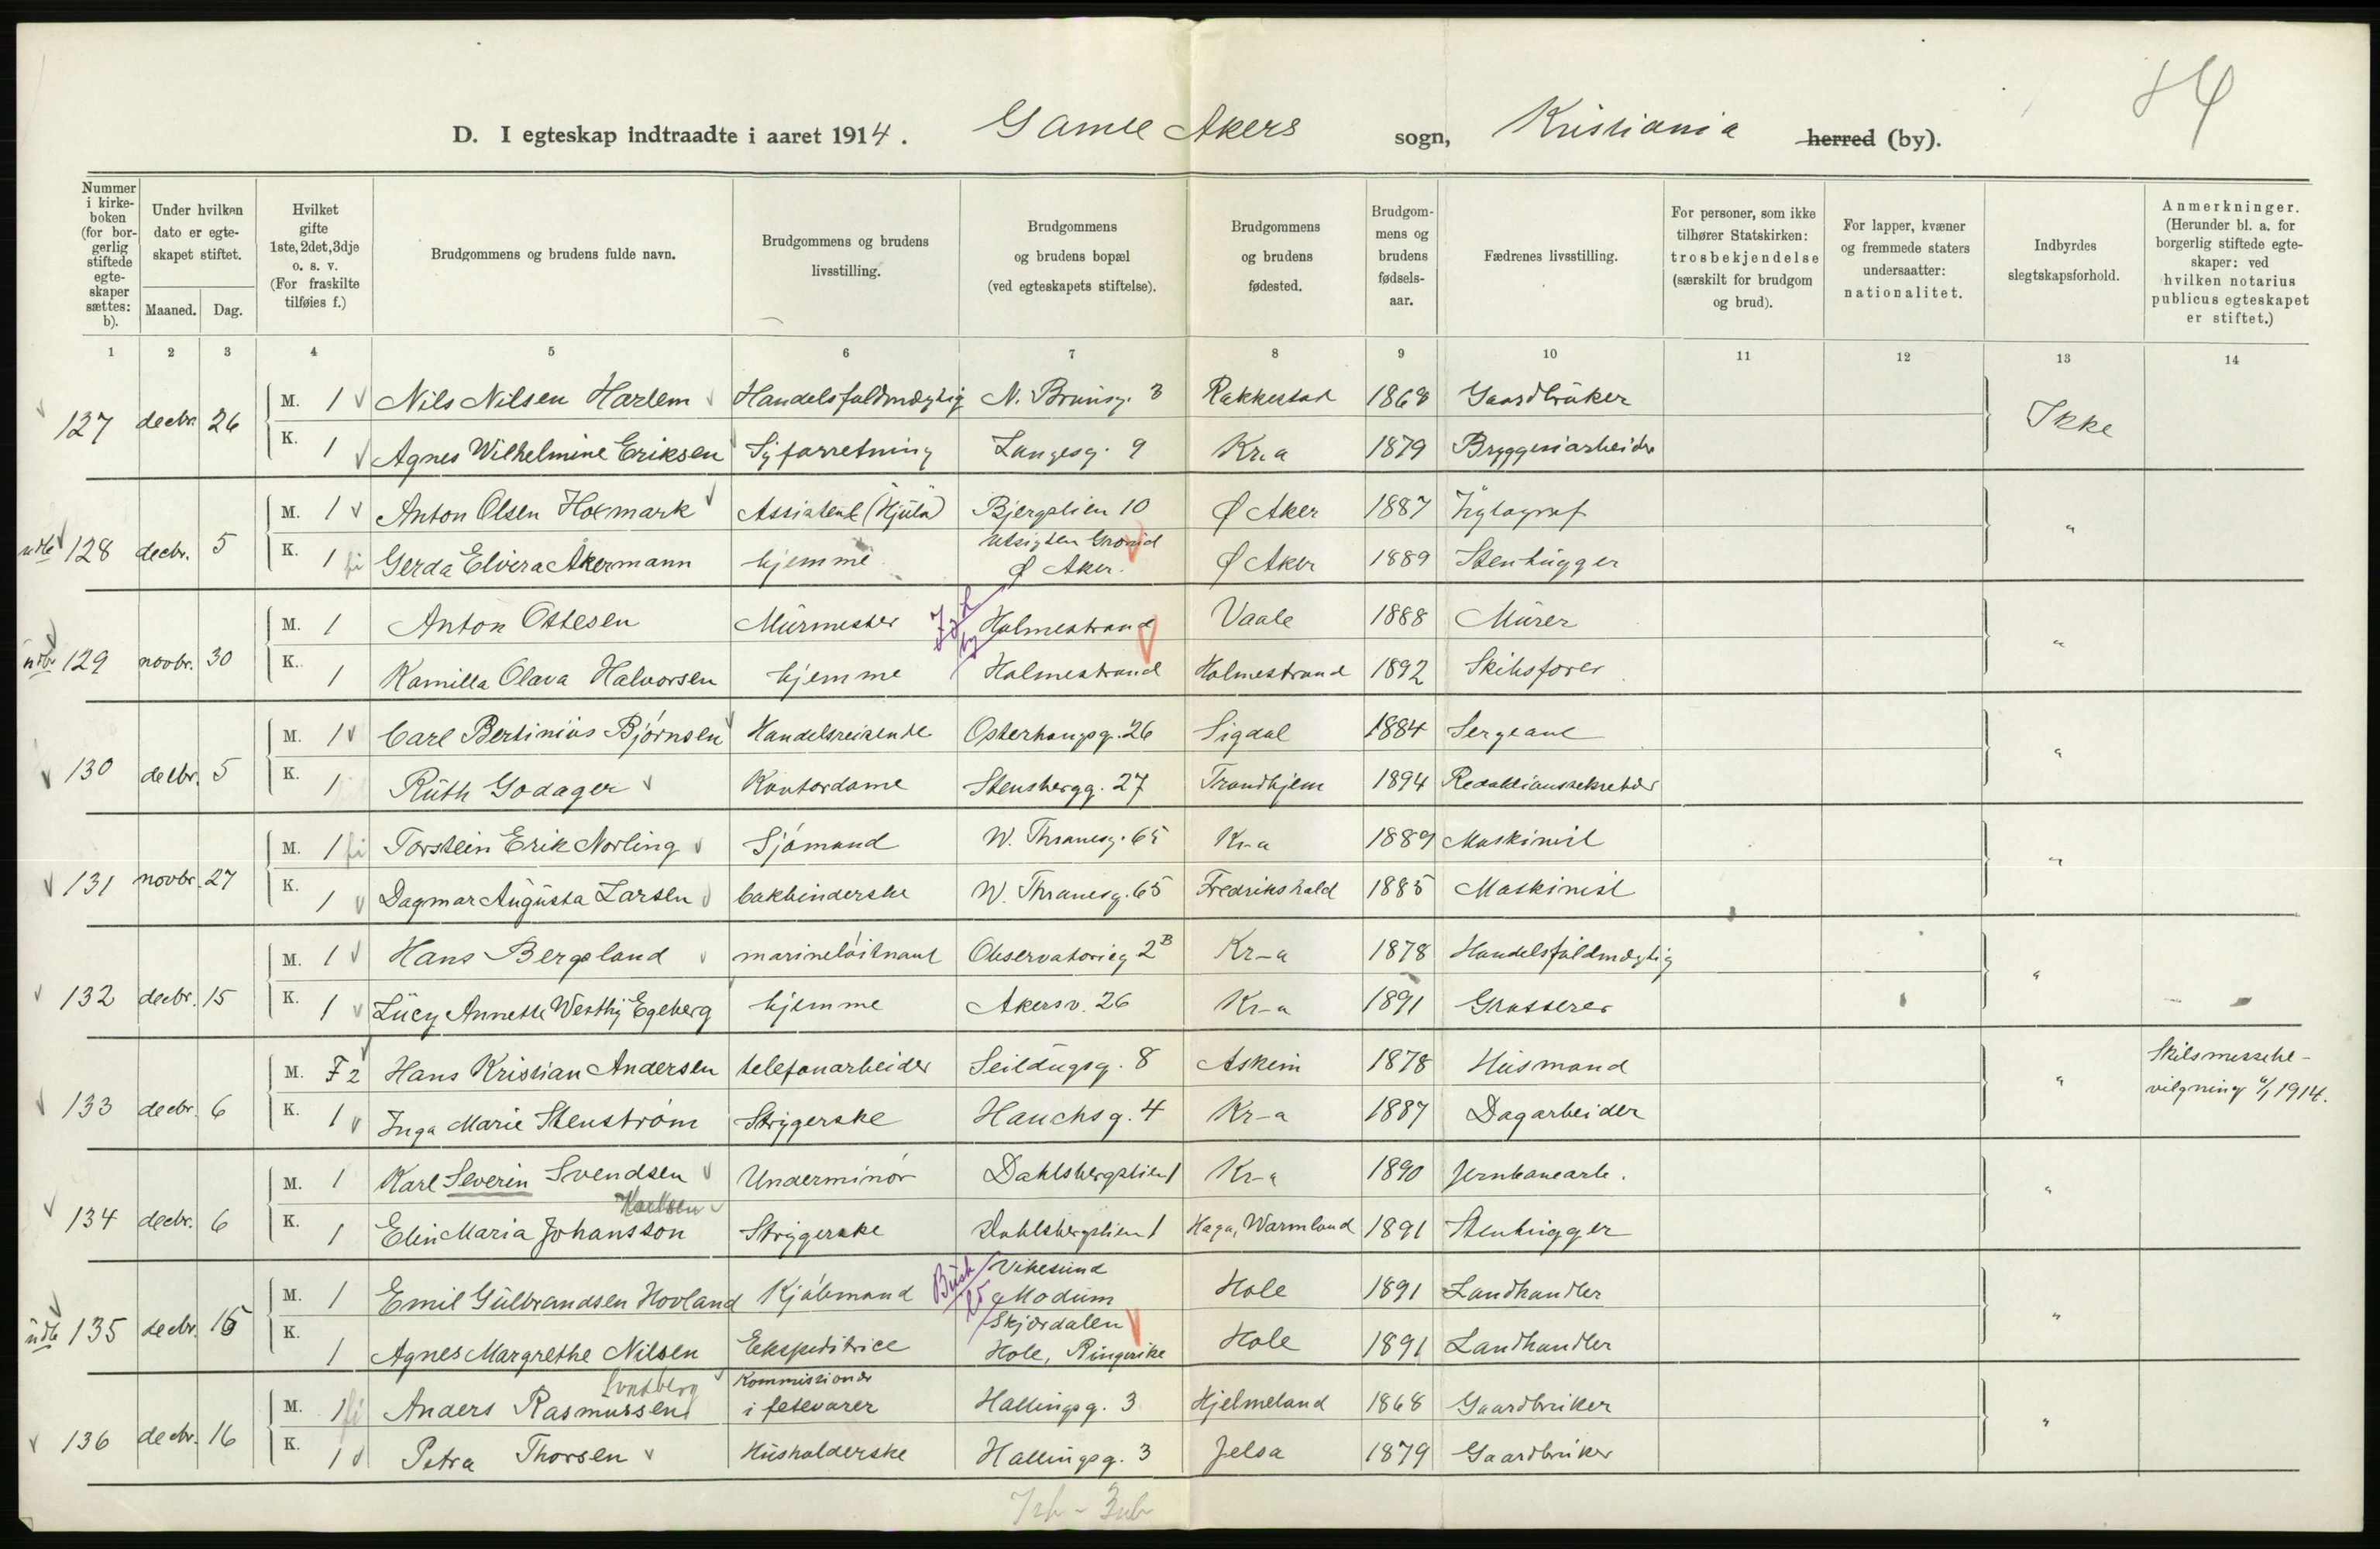 D. I egteskap indtraadte i aaret 1914. Gamle Akers sogn, Kristiania herred (by).
Nummer i kirkeboken (for borgerlig stiftede egteskaper sættes: b).
Under hvilken dato er egteskapet stiftet.
Maaned. Dag.
Hvilket gifte 1ste, 2det, 3dje o. s. v. (For fraskilte tilføies f.)
Brudgommens og brudens fulde navn.
Brudgommens og brudens livsstilling.
Brudgommens og brudens bopæl (ved egteskapets stiftelse).
Brudgommens og brudens fødested.
Brudgommens og brudens fødselsaar.
Fædrenes livsstilling.
For personer, som ikke tilhører Statskirken: trosbekjendelse (særskilt for brudgom og brud).
For lapper, kvæner og fremmede staters undersaatter: nationalitet.
Indbyrdes slegtskapsforhold.
Anmerkninger. (Herunder bl. a. for borgerlig stiftede egteskaper: ved hvilken notarius publicus egteskapet er stiftet.)
1 2 3 4 5 6 7 8 9 10 11 12 13 14
137 decbr. 26 M. 1 Nils Nilsen Harlem Handelsfuldmægtig N. Brunsg. 3 Rakkestad 1868 Gaardbruker Ikke
K. 1 Agnes Wilhelmine Eriksen Syforretning Langesg. 9 Kr.a 1879 Bryggeriarbeider
128 decbr. 5 M. 1 Anton Olsen Hoemark Assistent (Hjula) Bjergslien 10 Ø Aker 1887 Xylograf "
K. 1 Gerda Elvira Akermann hjemme Utsigten Grorud Ø Aker. Ø Aker 1889 Stenhugger
129 novbr. 30 M. 1 Anton Ottesen Murmester Holmestrand Vaale 1888 Murer "
K. 1 Kamilla Olava Halvorsen hjemme Holmestrand Holmestrand 1892 Skibsfører
130 decbr. 5 M. 1 Carl Bertinius Bjørnsen Handelsreisende Osterhausg. 26 Sigdal 1884 Sergeant "
K. 1 Ruth Godager Kontordame Stensbergg. 27 Trondhjem 1894 Redaktionssekretær
131 novbr. 27 M. 1 Torstein Erik Norling Sjømand W. Thranesg. 65 Kr-a 1889 Maskinist "
K. 1 Dagmar Augusta Larsen bokbinderske W. Thranesg. 65 Fredrikshald 1885 Maskinist
132 decbr. 15 M. 1 Hans Bergsland marineløitnant Observatorieg 2B Kr-a 1878 Handelsfuldmægtig "
K. 1 Lucy Annette Westby Egeberg hjemme Akersv. 26 Kr-a 1891 Grosserer
133 decbr. 6 M. F 2 Hans Kristian Andersen telefonarbeider Seildugsg. 8 Askim 1878 Husmand " Skilsmissebevilgning 1914.
K. 1 Inga Marie Stenstrøm Strygerske Hauchsg. 4 Kr-a 1887 Dagarbeider
134 decbr. 6 M. 1 Karl Severin Svendsen Underminør Dahlsbergstien 1 Kr-a 1890 Jernbanearb. "
Karlsen
K. 1 Elin Maria Johansson Strygerske Dahlsbergstien 1 Haga, Warmland 1891 Stenhugger
135 decbr. 15 M. 1 Emil Gulbrandsen Hovland Kjøbmand Busk Vikesund Modum Hole 1891 Landhandler "
K. 1 Agnes Margrethe Nilsen Ekspeditrice Skjørdalen Hole, Ringerike Hole 1891 Landhandler
136 decbr. 16 M. 1 Anders Rasmussen Kommissionær i fetevarer Hallingsg. 3 Hjelmeland 1868 Gaardbruker "
K. 1 Petra Thorsen Husholderske Hallingsg. 3 Jelsa 1879 Gaardbruker